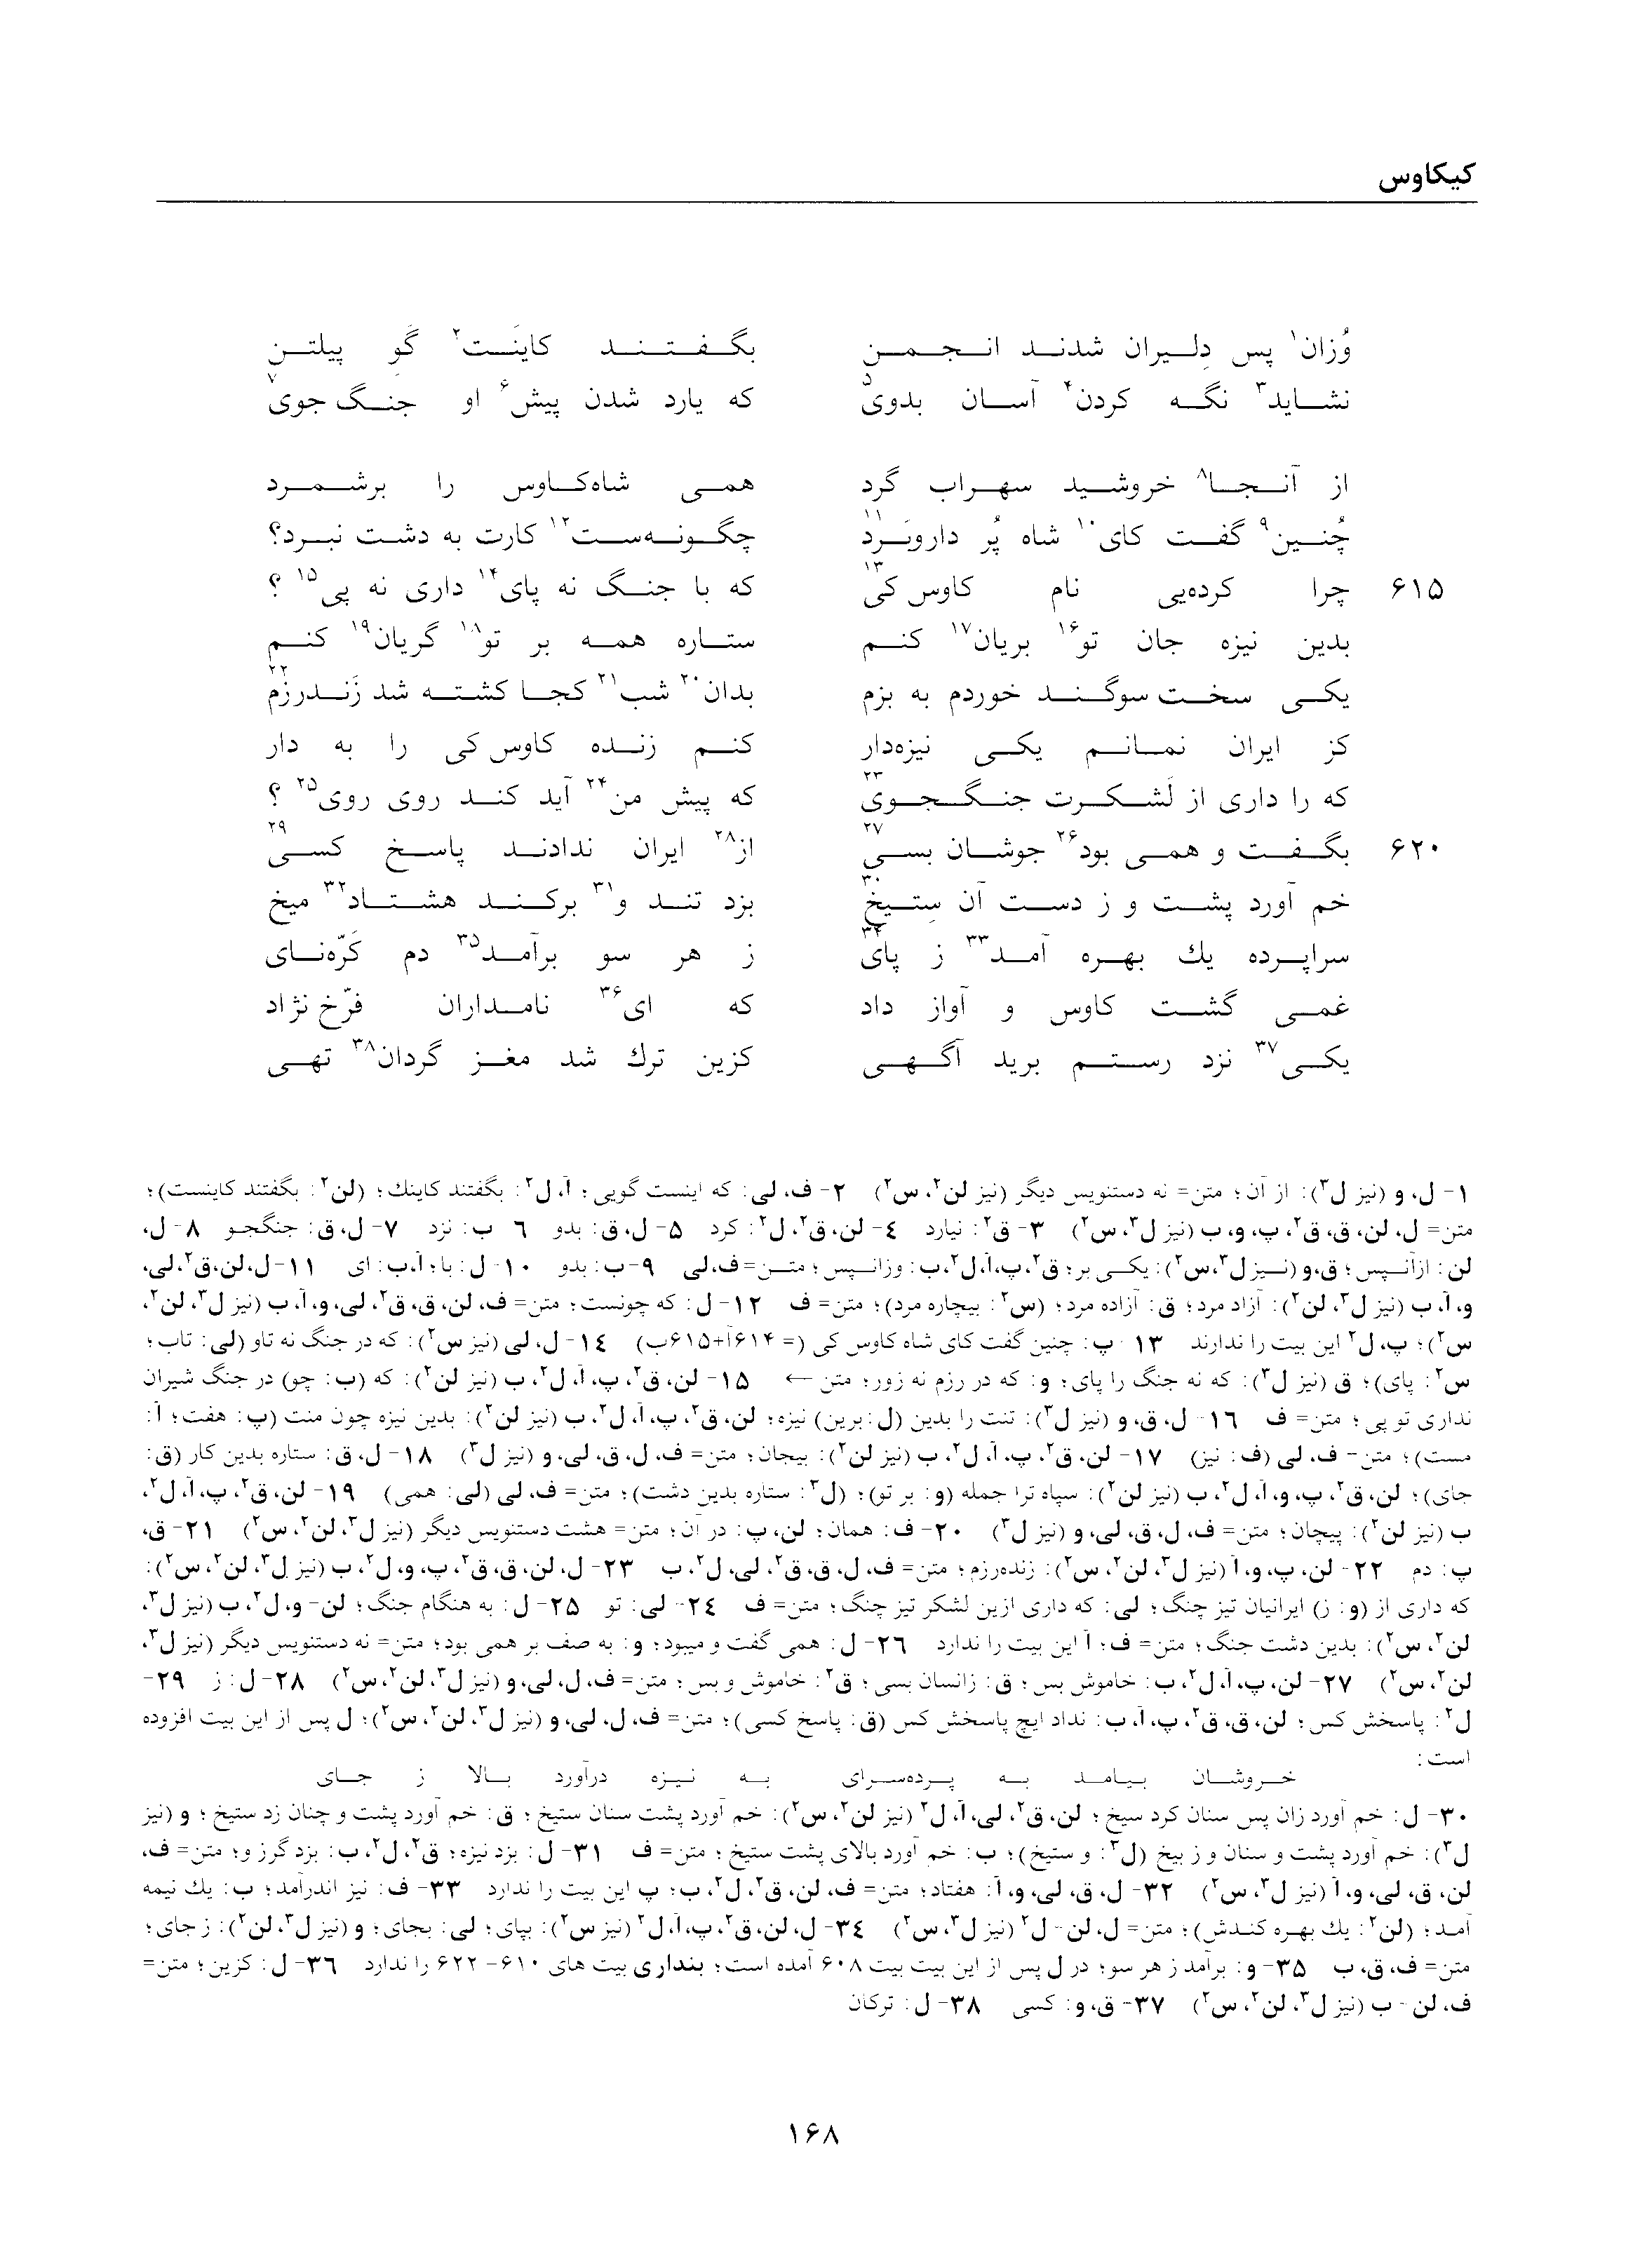 کیکاوس
وُزان۱ پس دِلیران شدند انجمن بگفتند کاینَست۲ گَوِ پیلتن
نشاید۳ نگه کردن۴ آسان بدوی۵ که یارد شدن پیش۶ او جنگ جوی۷
از آنجا۸ خروشید سهراب گرد همی شاه کاوس را برشمرد
چُنین۹ گفت کای۱۰ شاه پُر دار‌و‌بَرد۱۱ چگونه‌ست۱۲ کارت به دشت نبرد؟
۶۱۵ چرا کرده‌یی نام کاوس کی۱۳ که با جنگ نه پای۱۴ داری نه پی۱۵ ؟
بدین نیزه جان تو۱۶ بریان۱۷ کنم ستاره همه بر تو۱۸ گریان۱۹ کنم
یکی سخت سوگند خوردم به بزم بدان۲۰ شب۲۱ کجا کشته شد ژَندرزم۲۲
کز ایران نمانم یکی نیزه‌دار کنم زنده کاوس کی را به دار
که را داری از لَشکرت جنگجوی۲۳ که پیش من۲۴ آید کند روی روی۲۵ ؟
۶۲۰ بگفت و همی بود۲۶ جوشان بسی۲۷ از۲۸ ایران ندادند پاسخ کسی۲۹
خم آورد پشت و ز دست آن سِتیخ۳۰ بزد تند و۳۱ برکند هشتاد۳۲ میخ
سراپرده یك بهره آمد۳۳ ز پای۳۴ ز هر سو برآمد۳۵ دم کَرّه‌نای
غمی گشت کاوس و آواز داد که ای۳۶ نامداران فرّخ نژاد
یکی۳۷ نزد رستم برید آگهی کزین ترك شد مغز گردان۳۸ تهی
۱- ل، و (نیز ل۳): از آن؛ متن= نه دستنویس دیگر (نیز لن۲، س۲) ۲- ف، لی: که اینست گویی؛ آ، ل۲: بگفتند کاینك؛ (لن۲: بگفتند کاینست)؛
متن= ل، لن، ق، ق۲، پ، و، ب (نیز ل۳، س۲) ۳- ق۲: نیارد ۴- لن، ق۲، ل۲: کرد ۵- ل، ق: بدو ۶ ب: نزد ۷- ل، ق: جنگجو ۸- ل،
لن: ازآنپس؛ ق، و (نیز ل۳، س۲): یکی بر؛ ق۲، پ، آ، ل۲، ب: وزانپس؛ متن=ف، لی ۹- ب: بدو ۱۰- ل: با؛ آ، ب: ای ۱۱- ل، لن، ق۲، لی،
و، آ، ب (نیز ل۳، لن۲): آزاد مرد؛ ق: آزاده مرد؛ (س۲: بیچاره مرد)؛ متن= ف ۱۲- ل: که چونست؛ متن= ف، لن، ق، ق۲، لی، و، آ، ب (نیز ل۳، لن۲،
س۲)؛ پ، ل۲ این بیت را ندارند ۱۳- پ: چنین گفت کای شاه کاوس کی (= ۶۱۴آ+۶۱۵ب) ۱۴- ل، لی (نیز س۲): که در جنگ نه تاو (لی: تاب؛
س۲: پای)؛ ق (نیز ل۳): که نه جنگ را پای؛ و: که در رزم نه زور؛ متن ← ۱۵- لن، ق۲، پ، آ، ل۲، ب (نیز لن۲): که (ب: چو) در جنگ شیران
نداری تو پی؛ متن= ف ۱۶- ل، ق، و (نیز ل۳): تنت را بدین (ل: برین) نیزه؛ لن، ق۲، پ، آ، ل۲، ب (نیز لن۲): بدین نیزه چون منت (پ: هفت؛ آ:
مست)؛ متن= ف، لی (ف: نیز) ۱۷- لن، ق۲، پ، آ، ل۲، ب (نیز لن۲): بیجان؛ متن= ف، ل، ق، لی، و (نیز ل۳) ۱۸- ل، ق: ستاره بدین کار (ق:
جای)؛ لن، ق۲، پ، و، آ، ل۲، ب (نیز لن۲): سپاه ترا جمله (و: بر تو)؛ (ل۳: ستاره بدین دشت)؛ متن= ف، لی (لی: همی) ۱۹- لن، ق۲، پ، آ، ل۲،
ب (نیز لن۲): پیچان؛ متن= ف، ل، ق، لی، و (نیز ل۳) ۲۰- ف: همان؛ لن، پ: در آن؛ متن= هشت دستنویس دیگر (نیز ل۳، لن۲، س۲) ۲۱- ق،
پ: دم ۲۲- لن، پ، و، آ (نیز ل۳، لن۲، س۲): زنده‌رزم؛ متن= ف، ل، ق، ق۲، لی، ل۲، ب ۲۳- ل، لن، ق، ق۲، پ، و، ل۲، ب (نیز ل۳، لن۲، س۲):
که داری از (و: ز) ایرانیان تیز چنگ؛ لی: که داری ازین لشکر تیز چنگ؛ متن= ف ۲۴- لی: تو ۲۵- ل: به هنگام جنگ؛ لن- و، ل۲، ب (نیز ل۳،
لن۲، س۲): بدین دشت جنگ؛ متن= ف؛ آ این بیت را ندارد ۲۶- ل: همی گفت و میبود؛ و: به صف بر همی بود؛ متن= نه دستنویس دیگر (نیز ل۳،
لن۲، س۲) ۲۷- لن، پ، آ، ل۲، ب: خاموش بس؛ ق: زانسان بسی؛ ق۲: خاموش و بس؛ متن= ف، ل، لی، و (نیز ل۳، لن۲، س۲) ۲۸- ل: ز ۲۹-
ل۲: پاسخش کس؛ لن، ق، ق۲، پ، آ، ب: نداد ایچ پاسخش کس (ق: پاسخ کسی)؛ متن= ف، ل، لی، و (نیز ل۳، لن۲، س۲)؛ ل پس از این بیت افزوده
است:
خروشان بیامد به پرده‌سرای به نیزه درآورد بالا ز جای
۳۰- ل: خم آورد زان پس سنان کرد سیخ؛ لن، ق۲، لی، آ، ل۲ (نیز لن۲، س۲): خم آورد پشت سنان ستیخ؛ ق: خم آورد پشت و چنان زد ستیخ؛ و (نیز
ل۳): خم آورد پشت و سنان و ز بیخ (ل۳: و ستیخ)؛ ب: خم آورد بالای پشت ستیخ؛ متن= ف ۳۱- ل: بزد نیزه؛ ق۲، ل۲، ب: بزد گرز و؛ متن= ف،
لن، ق، لی، و، آ (نیز ل۳، س۲) ۳۲- ل، ق، لی، و، آ: هفتاد؛ متن= ف، لن، ق۲، ل۲، ب؛ پ این بیت را ندارد ۳۳- ف: نیز اندرآمد؛ ب: یك نیمه
آمد؛ (لن۲: یك بهره کندش)؛ متن= ل، لن- ل۲ (نیز ل۳، س۲) ۳۴- ل، لن، ق۲، پ، آ، ل۲ (نیز س۲): بپای؛ لی: بجای؛ و (نیز ل۳، لن۲): ز جای؛
متن= ف، ق، ب ۳۵- و: برآمد ز هر سو؛ در ل پس از این بیت بیت ۶۰۸ آمده است؛ بنداری بیت های ۶۱۰- ۶۲۲ را ندارد ۳۶- ل: کزین؛ متن=
ف، لن - ب (نیز ل۳، لن۲، س۲) ۳۷- ق، و: کسی ۳۸- ل: ترکان
۱۶۸